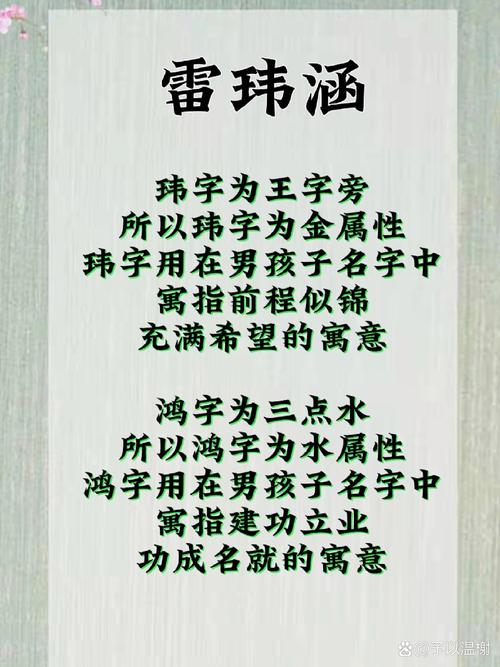 雷玮涵
玮字为王字旁
所以玮字为金属性
玮字用在男孩子名字中
寓指前程似锦
充满希望的寓意
鸿字为三点水
所以鸿字为水属性
鸿字用在男孩子名字中
寓指建功立业
功成名就的寓意
@予以温榭